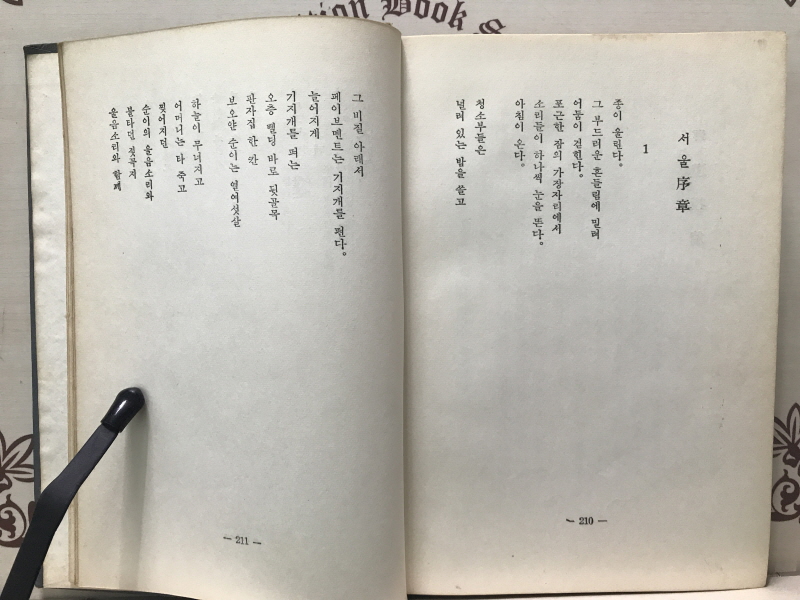 tion Book S
서울序章
1
종이 울린다.
그 부드러운 흔들림에 밀려
어둠이 걷힌다.
포근한 잠의 가장자리에서
소리들이 하나씩 눈을 뜬다.
아침이 온다.
청소부들은
널려 있는 밤을 쓸고
— 210 —
그 비질 아래서
페이브멘트는 기지개를 켠다.
늘어지게
기지개를 펴는
오층 삘딩 바로 뒷골목
판자집 한 칸
보오얀 순이는 열여섯살
하늘이 무너지고
어머니는 타 죽고
찢어지던
순이의 울음소리와
불타던 판자
울음소리와 함께
— 211 —